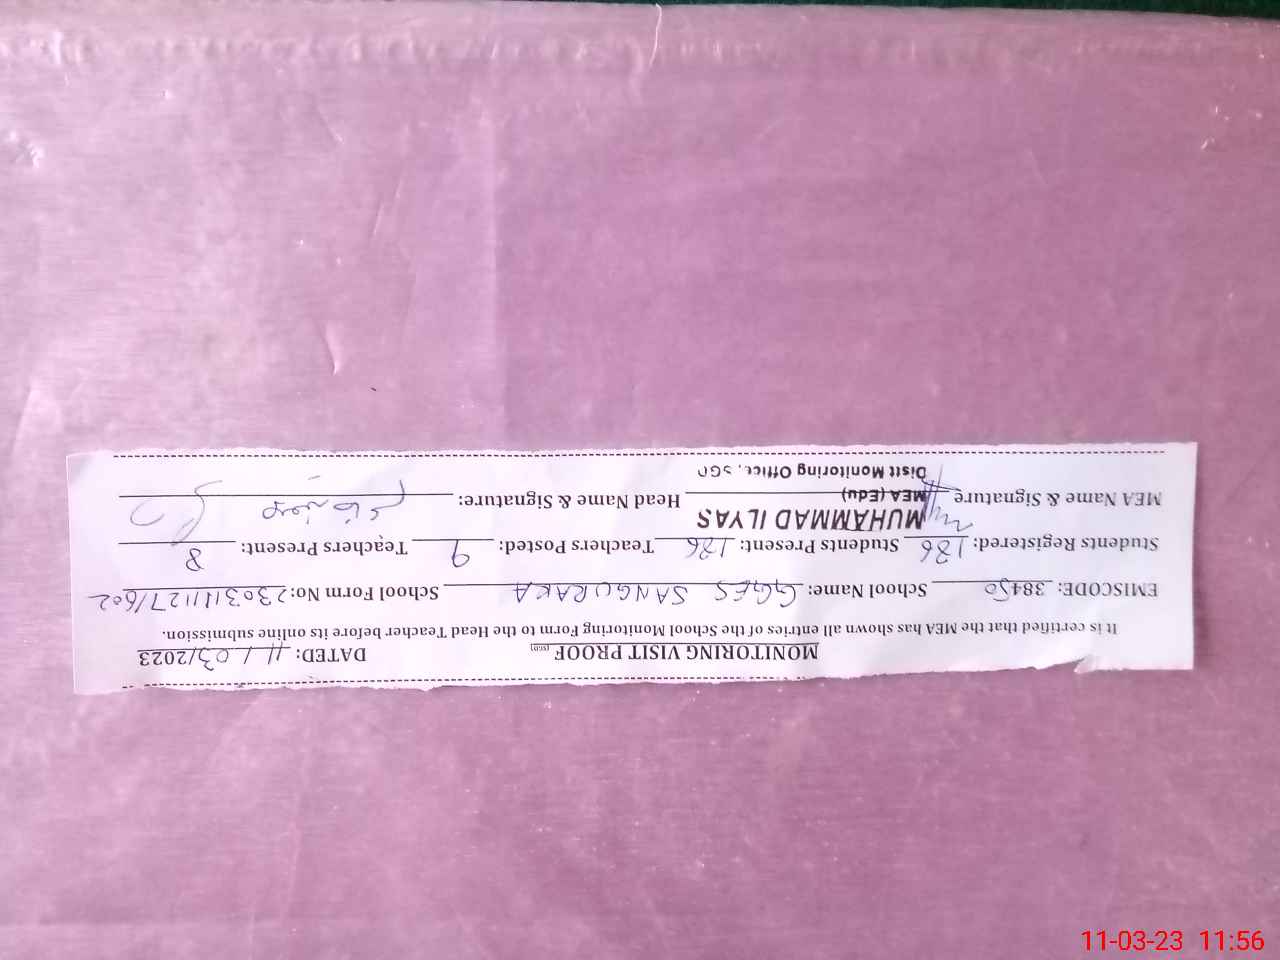 MONITORING VISIT PROOF (SGD) DATED: 11/03/2023
It is certified that the MEA has shown all entries of the School Monitoring Form to the Head Teacher before its online submission.
EMISCODE: 38450 School Name: GGES SANGURAKA School Form No: 23031111271602
Students Registered: 186 Students Present: 186 Teachers Posted: 9 Teachers Present: 8
MUHAMMAD ILYAS
MEA Name & Signature MEA (Edu) Head Name & Signature:
Disit Monitoring Office, SGD
11-03-23 11:56